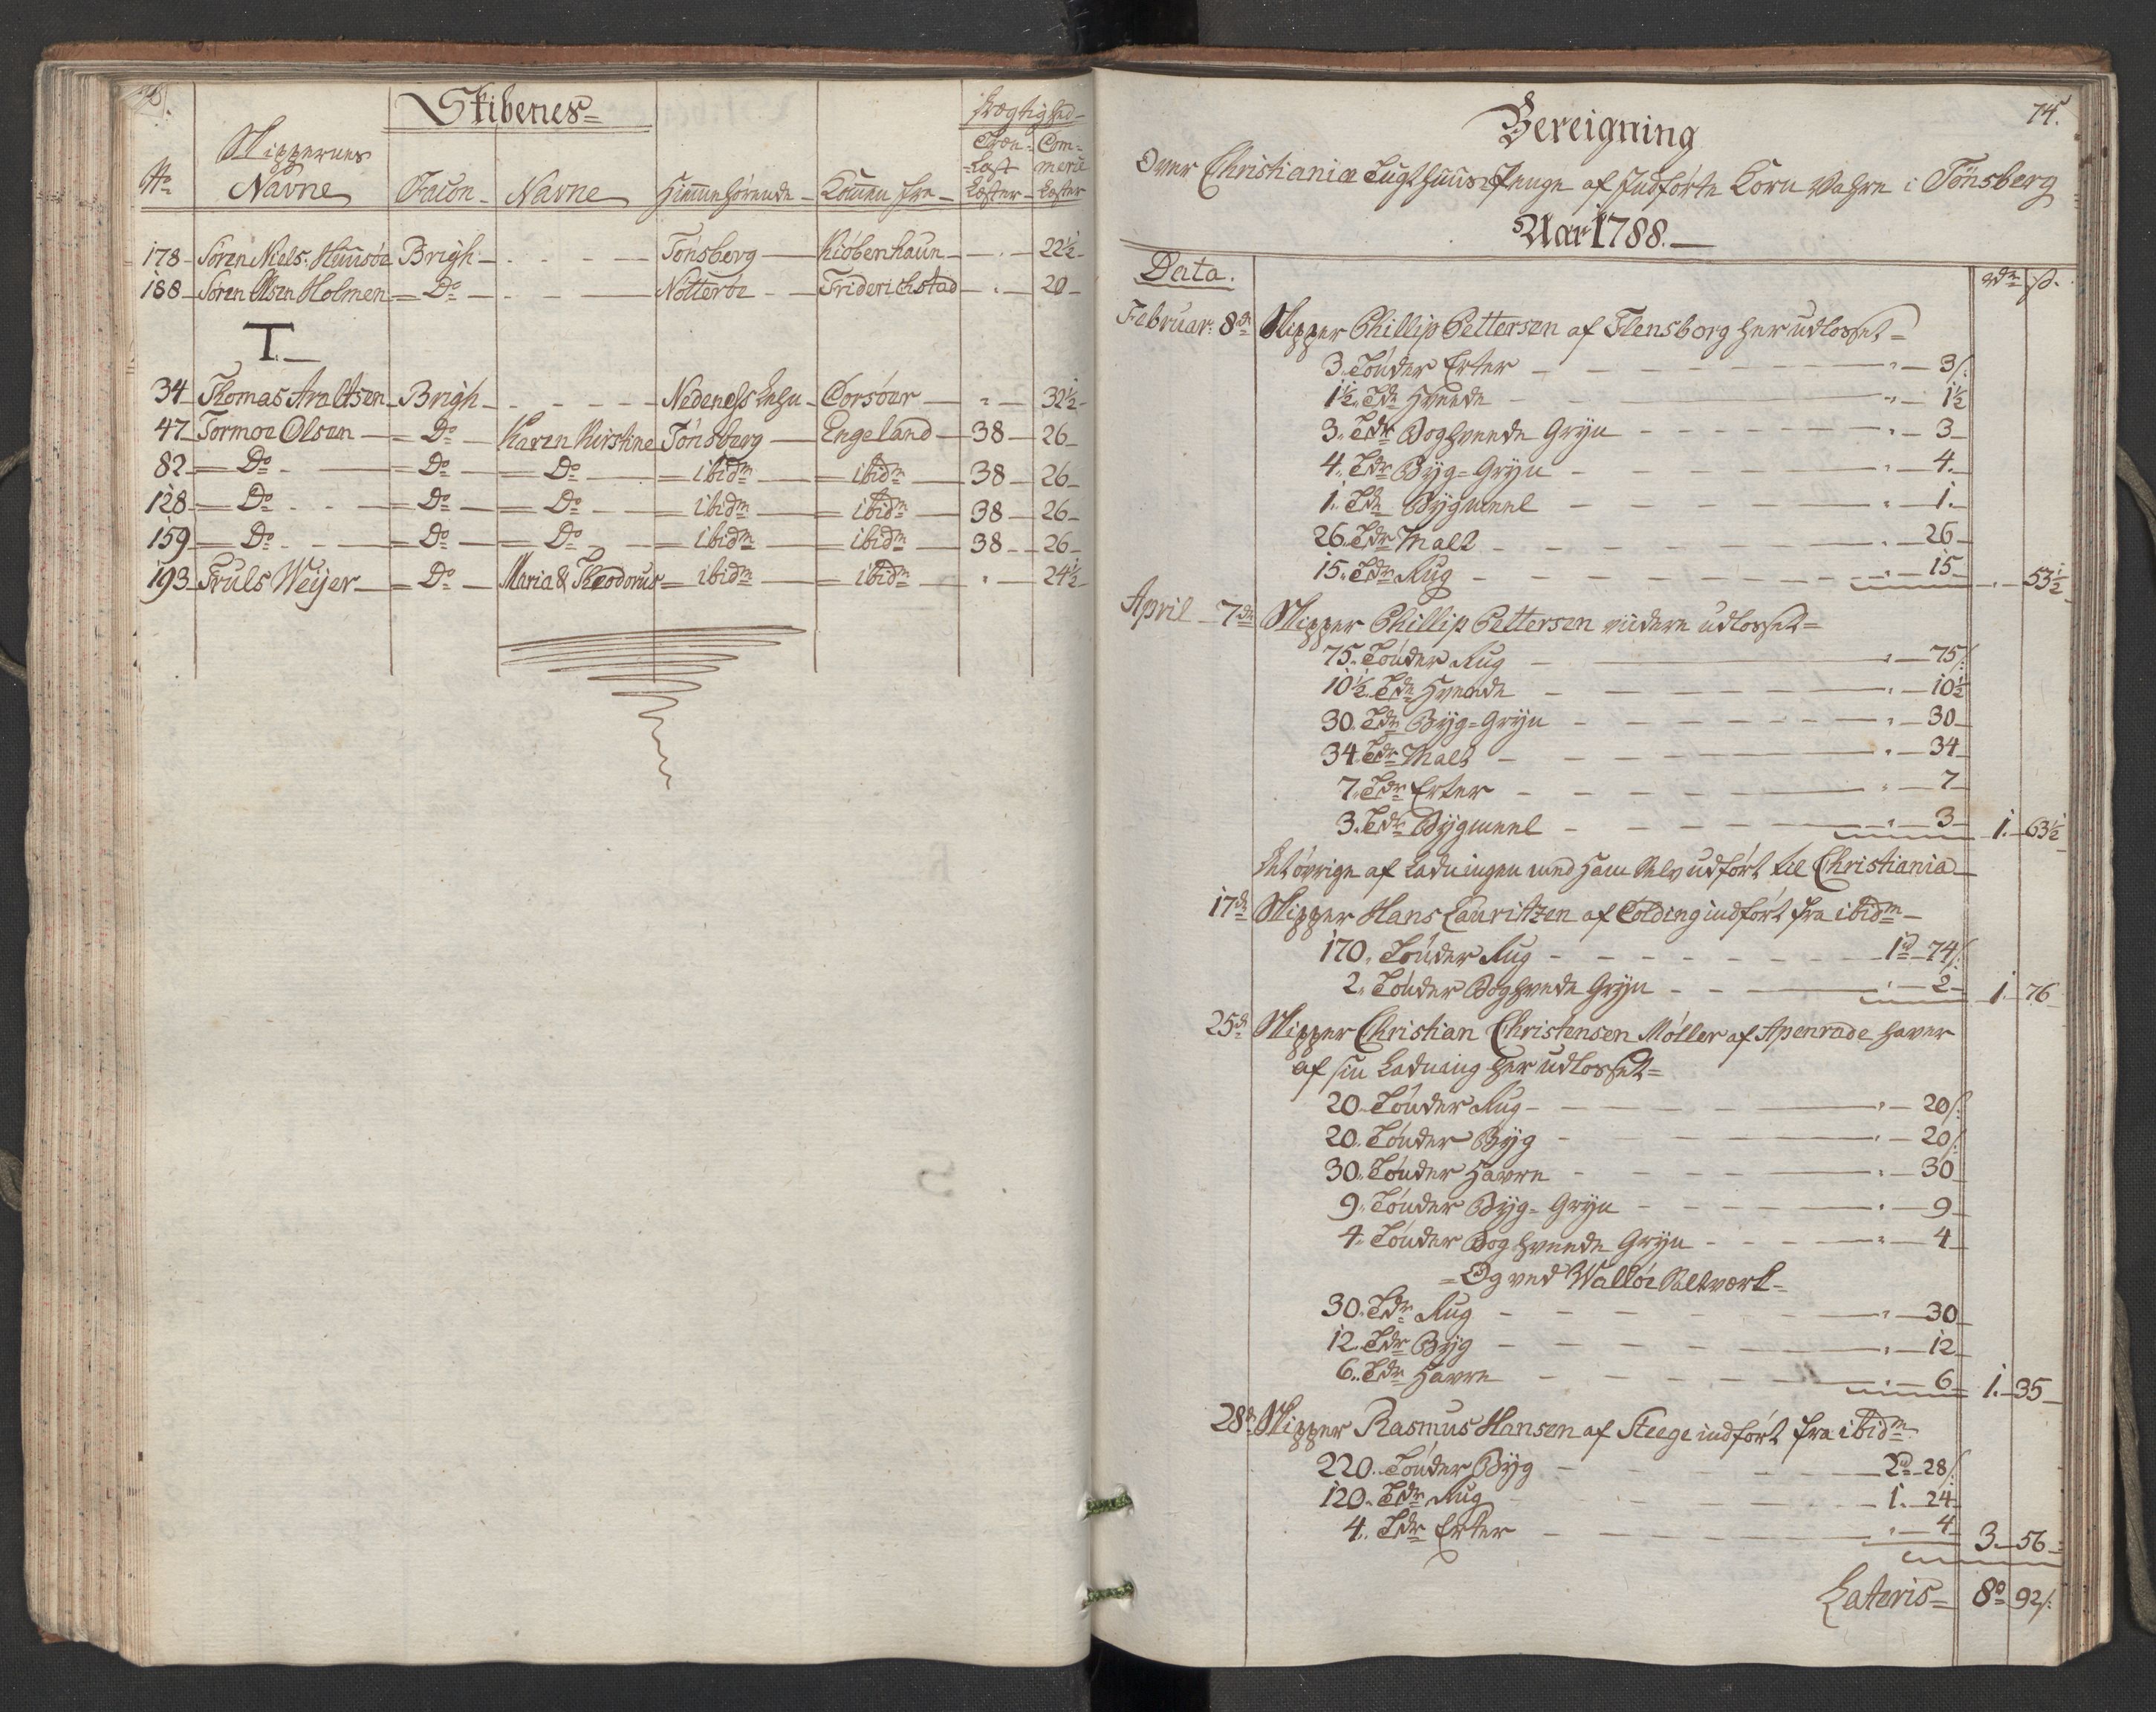 Skibenes=
Drægtighed-
Skippernes
Træ-
Com-
=last
merce
No
Navne
Facon-
Navne
Hiemmehörende-
Kommen fra-
Læster-
Læster
178- Sören Niels: Huusöe Brigh- - - - Tönsberg- Kiöbenhaun- - - 22½-
188- Sören Olsen Holmen= Do- - - - Nötteröe- - Friderichstad- - 20-
T.
34- Thomas Araltsen- Brigh- - - - Nedenes Lehn- Corsöer- " - 32½-
47- Tormoe Olsen- = Do- Karen Kirstine Tönsberg- Engeland- 38- 26-
82= Do- = Do- = Do- = ibidm- = ibidm- 38- 26-
128= Do- - = Do- = Do- = ibidm- = ibidm- 38- 26-
159= Do- - = Do- = Do- = ibidm- = ibidm- 38- 26-
193- Truls Weyer- = Do- Maria & Theodorus= ibidm- = ibidm- " - 24½-
74.
Bereigning
Over Christianiæ Tugthuuses Penge af Indförte Korn Vahre i Tönsberg
Aar 1788.-
Data.
Rdr ß.
Februar: 8de Skipper Phillip Pettersen af Flensborg her udlosset=
3. Tönder Erter - - - " - 3ß.
1½. Tde Hvede - - - " - 1½
3. Tdr Boghvede Gryn - - - " - 3-
4. Tdr Byg=Gryn - - - " - 4.-
1. Tde Bygmeel - - - " - 1.-
26. Tdr Malt - - - " - 26-
15. Tdr Rug - - - " - 15- - " - 53½
April- 7de Skipper Phillip Pettersen viidere udlosset=
75. Tönder Rug - - " - 75ß.
10½. Tdr Hvede - - " - 10½
30. Tdr Byg=Gryn - - - " - 30-
34. Tdr Malt - - - " - 34
7. Tdr Erter - - - " - 7-
3. Tdr Bygmeel - - - " - 3- 1.- 63½
Det övrige af Ladningen med ham Selv udfört til Christiania-
17de Skipper Hans Lauritzen af Colding indfört fra ibidm-
170. Tönder Rug - - - 1d- 74ß.
2. Tönder Boghvede Gryn - - - " - 2- 1.- 76
25de Skipper Christian Christensen Möller af Apenrade haver
af sin Ladning her udlosset=
20. Tönder Rug - - - " - 20ß.
20. Tönder Byg - - - " - 20ß.
30. Tönder Havre - - - " - 30
9. Tönder Byg=Gryn - - - " - 9-
4. Tönder Boghvede Gryn - - - " - 4-
=Og ved Wallöe Saltværk=
30. Tdr Rug - - - " - 30-
12. Tdr Byg - - - " - 12-
6. Tdr Havre - - - " - 6= 1.- 35-
28de Skipper Rasmus Hansen af Steege indfört fra ibidm-
220. Tönder Byg - - - 2d- 28ß.
120. Tdr Rug - - - 1.- 24-
4. Tdr Erter - - - " - 4- 3.- 56-
Lateris= 8d 92ß.